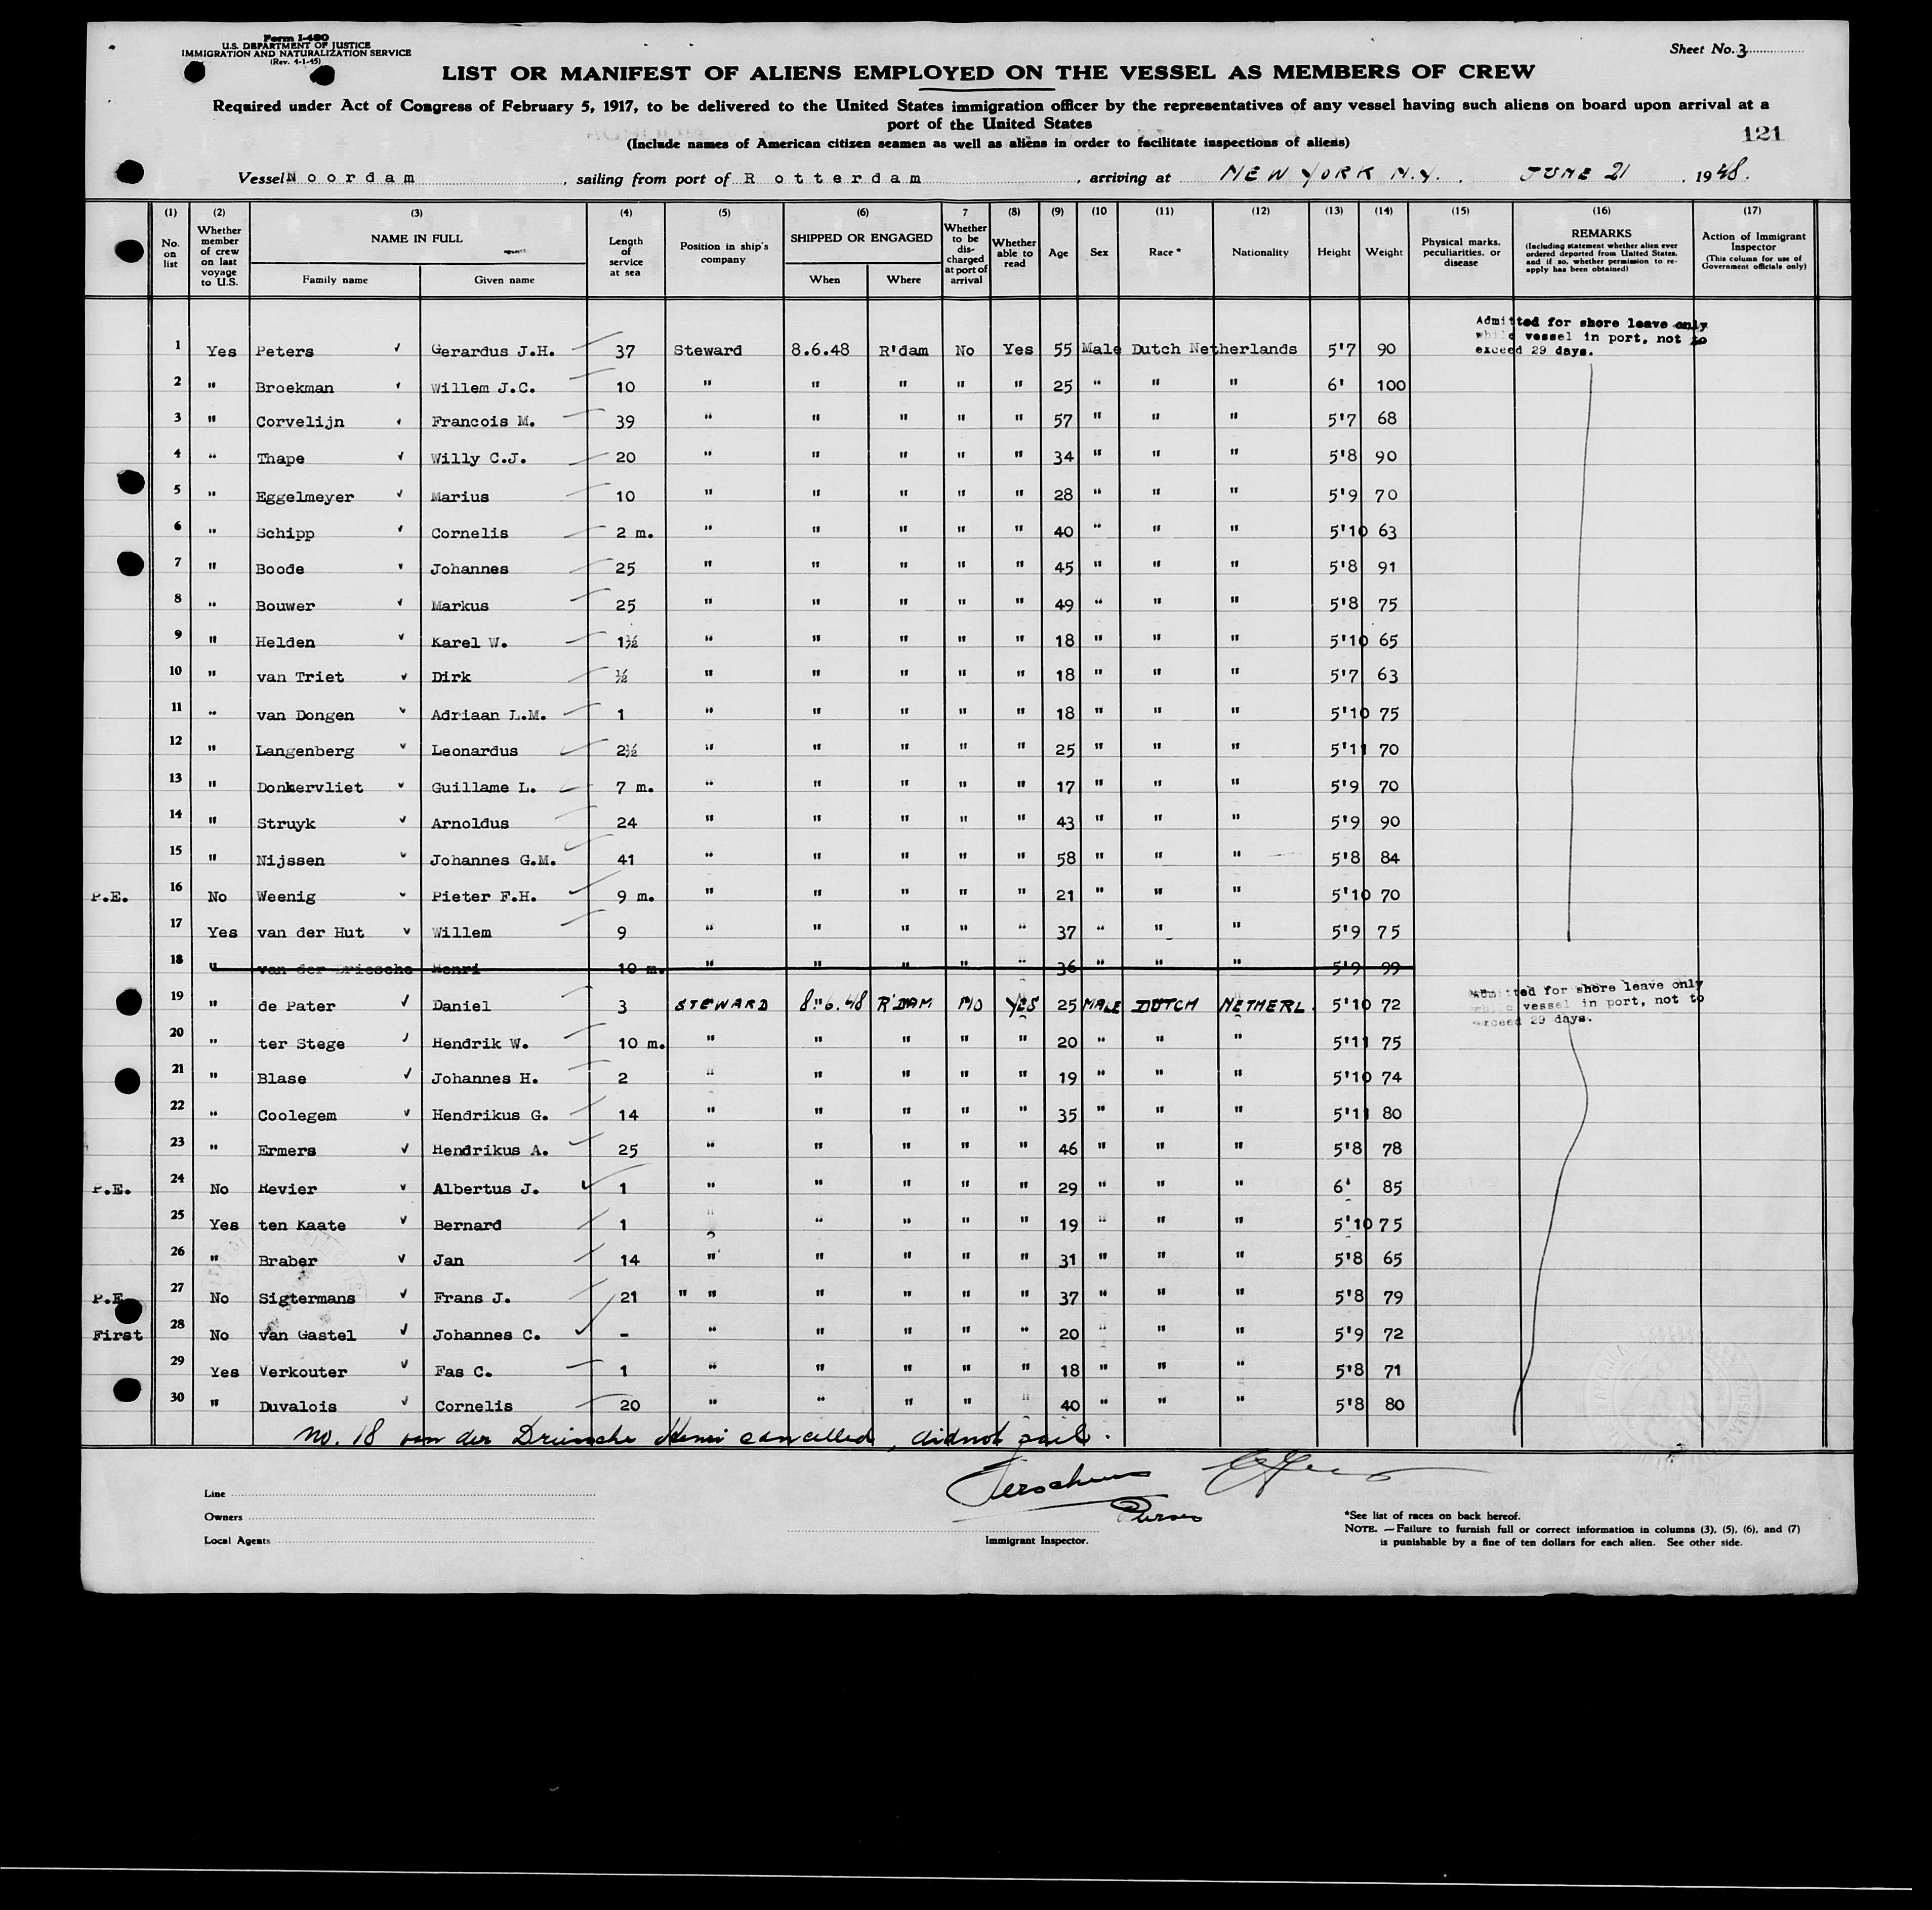 Form I-480
U.S. DEPARTMENT OF JUSTICE
IMMIGRATION AND NATURALIZATION SERVICE
(Rev. 4-1-45)
Sheet No. 3
LIST OR MANIFEST OF ALIENS EMPLOYED ON THE VESSEL AS MEMBERS OF CREW
Required under Act of Congress of February 5, 1917, to be delivered to the United States immigration officer by the representatives of any vessel having such aliens on board upon arrival at a
port of the United States
121
(Include names of American citizen seamen as well as aliens in order to facilitate inspections of aliens)
Vessel Noordam, sailing from port of Rotterdam, arriving at NEW YORK N.Y. JUNE 21, 1948.
(1) No. on list
(2) Whether member of crew on last voyage to U.S.
(3) NAME IN FULL Family name Given name
(4) Length of service at sea
(5) Position in ship's company
(6) SHIPPED OR ENGAGED When Where
7 Whether to be discharged at port of arrival
(8) Whether able to read
(9) Age
(10 Sex
(11) Race *
(12) Nationality
(13) Height
(14) Weight
(15) Physical marks, peculiarities, or disease
(16) REMARKS (Including statement whether alien ever ordered deported from United States, and if so, whether permission to re-apply has been obtained)
(17) Action of Immigrant Inspector (This column for use of Government officials only)
Admitted for shore leave only
while vessel in port, not to
exceed 29 days.
1 Yes Peters Gerardus J.H. 37 Steward 8.6.48 R'dam No Yes 55 Male Dutch Netherlands 5'7 90
2 " Broekman Willem J.C. 10 " " " " " 25 " " " 6' 100
3 " Corvelijn Francois M. 39 " " " " " 57 " " " 5'7 68
4 " Thape Willy C.J. 20 " " " " " 34 " " " 5'8 90
5 " Eggelmeyer Marius 10 " " " " " 28 " " " 5'9 70
6 " Schipp Cornelis 2 m. " " " " " 40 " " " 5'10 63
7 " Boode Johannes 25 " " " " " 45 " " " 5'8 91
8 " Bouwer Markus 25 " " " " " 49 " " " 5'8 75
9 " Helden Karel W. 1½ " " " " " 18 " " " 5'10 65
10 " van Triet Dirk ½ " " " " " 18 " " " 5'7 63
11 " van Dongen Adriaan L.M. 1 " " " " " 18 " " " 5'10 75
12 " Langenberg Leonardus 2½ " " " " " 25 " " " 5'11 70
13 " Donkervliet Guillame L. 7 m. " " " " " 17 " " " 5'9 70
14 " Struyk Arnoldus 24 " " " " " 43 " " " 5'9 90
15 " Nijssen Johannes G.M. 41 " " " " " 58 " " " 5'8 84
P.E. 16 No Weenig Pieter F.H. 9 m. " " " " " 21 " " " 5'10 70
17 Yes van der Hut Willem 9 " " " " " 37 " " " 5'9 75
18 " van der Driesche Henri 10 m. " " " " " 36 " " " 5'9 99
Admitted for shore leave only
while vessel in port, not to
exceed 29 days.
19 " de Pater Daniel 3 STEWARD 8.6.48 R'DAM NO YES 25 MALE DUTCH NETHERL. 5'10 72
20 " ter Stege Hendrik W. 10 m. " " " " " 20 " " " 5'11 75
21 " Blase Johannes H. 2 " " " " " 19 " " " 5'10 74
22 " Coolegem Hendrikus G. 14 " " " " " 35 " " " 5'11 80
23 " Ermers Hendrikus A. 25 " " " " " 46 " " " 5'8 78
P.E. 24 No Revier Albertus J. 1 " " " " " 29 " " " 6' 85
25 Yes ten Kaate Bernard 1 " " " " " 19 " " " 5'10 75
26 " Braber Jan 14 " " " " " 31 " " " 5'8 65
P.E. 27 No Sigtermans Frans J. 21 " " " " " " 37 " " " 5'8 79
First 28 No van Gastel Johannes C. - " " " " " 20 " " " 5'9 72
29 Yes Verkouter Fas C. 1 " " " " " 18 " " " 5'8 71
30 " Duvalois Cornelis 20 " " " " " 40 " " " 5'8 80
No. 18 van der Driesche Henri cancelled, did not sail.
Purser
Line
Owners
Local Agents
Immigrant Inspector.
*See list of races on back hereof.
NOTE. — Failure to furnish full or correct information in columns (3), (5), (6), and (7)
is punishable by a fine of ten dollars for each alien. See other side.